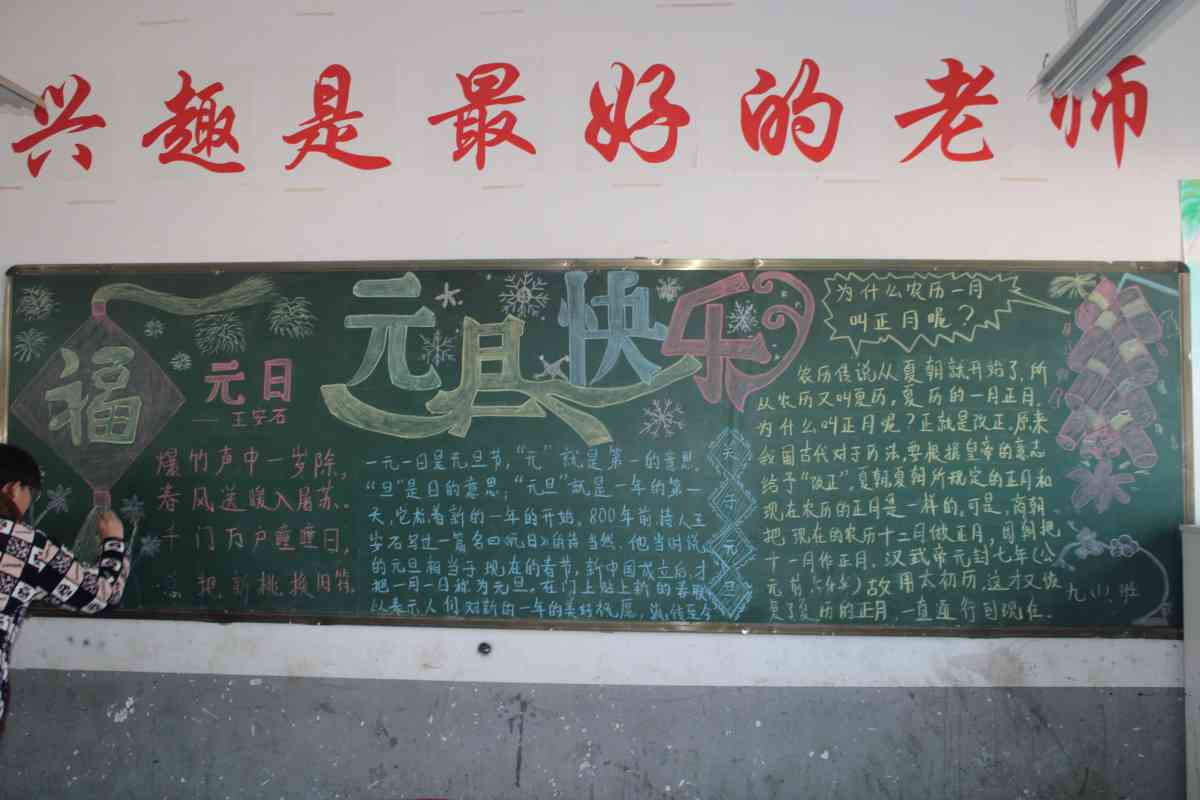 兴趣是最好的老师
福
元旦快乐
元日
——王安石
爆竹声中一岁除,
春风送暖入屠苏。
千门万户曈曈日,
总把新桃换旧符
一元一日是元旦节,“元”就是第一的意思,
“旦”是日的意思;“元旦”就是一年的第一
天,它标着新的一年的开始。800年前诗人王
安石写过一篇名曰《元日》的诗当然、他当时说
的元旦相当于现在的春节,新中国成立后,才
把一月一日称为元旦,在门上贴上新的春联
以表示人们对新的一年的美好祝愿,流传至今
关于元旦
为什么农历一月
叫正月呢?
农历传说从夏朝就开始了,所
从农历又叫夏历。夏历的一月正月,
为什么叫正月呢?正就是改正,原来
我国古代对于历法,要根据皇帝的意志
给予“改正”,夏朝夏朝所规定的正月和
现在农历的正月是一样的。可是,商朝
把现在的农历十二月做正月,周朝把
十一月作正月、汉武帝元封七年(公
元前)故用太初历,这才又恢
复了夏历的正月,一直运行到现在.
九(1)班